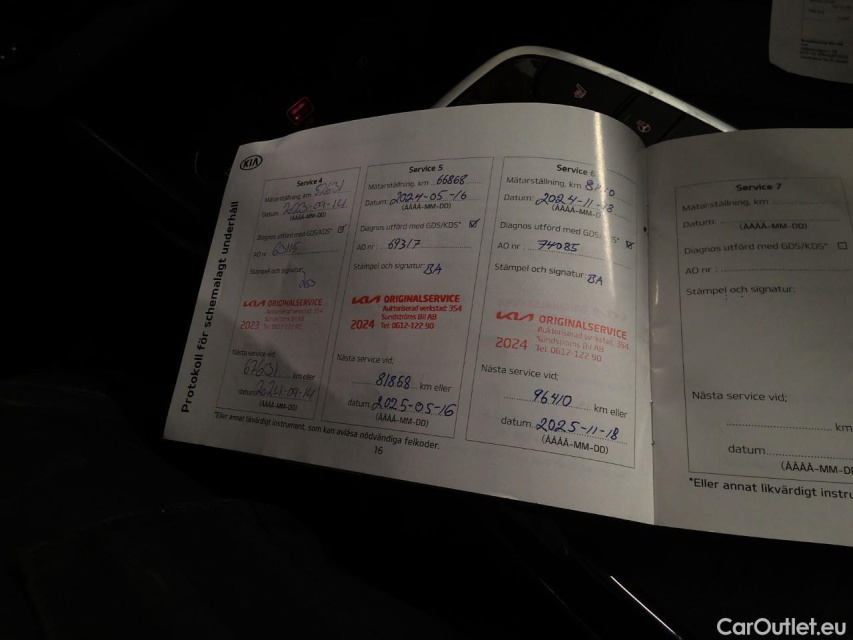 KIA
Protokoll för schemalagt underhåll
Service 4
Mätarställning, km
Datum: 2023-09-14
(ÅÅÅÅ-MM-DD)
Diagnos utförd med GDS/KDS*
AO nr:
Stämpel och signatur:
KIA ORIGINALSERVICE
Auktoriserad verkstad: 354
2023 Sundströms Bil AB
Tel: 0612-122 90
Nästa service vid
67631 km eller
datum: 2024-09-14
(ÅÅÅÅ-MM-DD)
Service 5
Mätarställning, km 66868
Datum: 2024-05-16
(ÅÅÅÅ-MM-DD)
Diagnos utförd med GDS/KDS*
AO nr: 69317
Stämpel och signatur: BA
KIA ORIGINALSERVICE
Auktoriserad verkstad: 354
Sundströms Bil AB
2024 Tel: 0612-122 90
Nästa service vid;
81868 km eller
datum: 2025-05-16
(ÅÅÅÅ-MM-DD)
Service 6
Mätarställning, km
Datum: 2024-11-18
(ÅÅÅÅ-MM-DD)
Diagnos utförd med GDS/KDS*
AO nr: 74085
Stämpel och signatur: BA
KIA ORIGINALSERVICE
Auktoriserad verkstad: 354
Sundströms Bil AB
2024 Tel: 0612-122 90
Nästa service vid;
96410 km eller
datum: 2025-11-18
(ÅÅÅÅ-MM-DD)
*Eller annat likvärdigt instrument, som kan avläsa nödvändiga felkoder.
16
Service 7
Mätarställning, km
Datum:
(ÅÅÅÅ-MM-DD)
Diagnos utförd med GDS/KDS*
AO nr :
Stämpel och signatur:
Nästa service vid;
km
datum
(ÅÅÅÅ-MM-D
*Eller annat likvärdigt instru
CarOutlet.eu